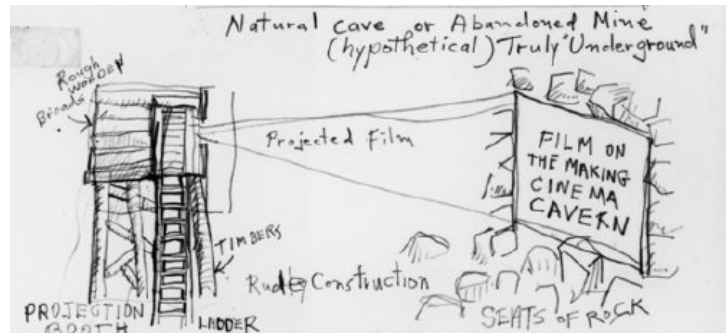 Natural cave or Abandoned Mine
(hypothetical) Truly "Underground"
Rough
WOODEN
Broads
Projected Film
FILM ON
THE MAKING
CINEMA
CAVERN
TIMBERS
Rude Construction
PROJECTION
BOOTH
LADDER
SEATS OF ROCK